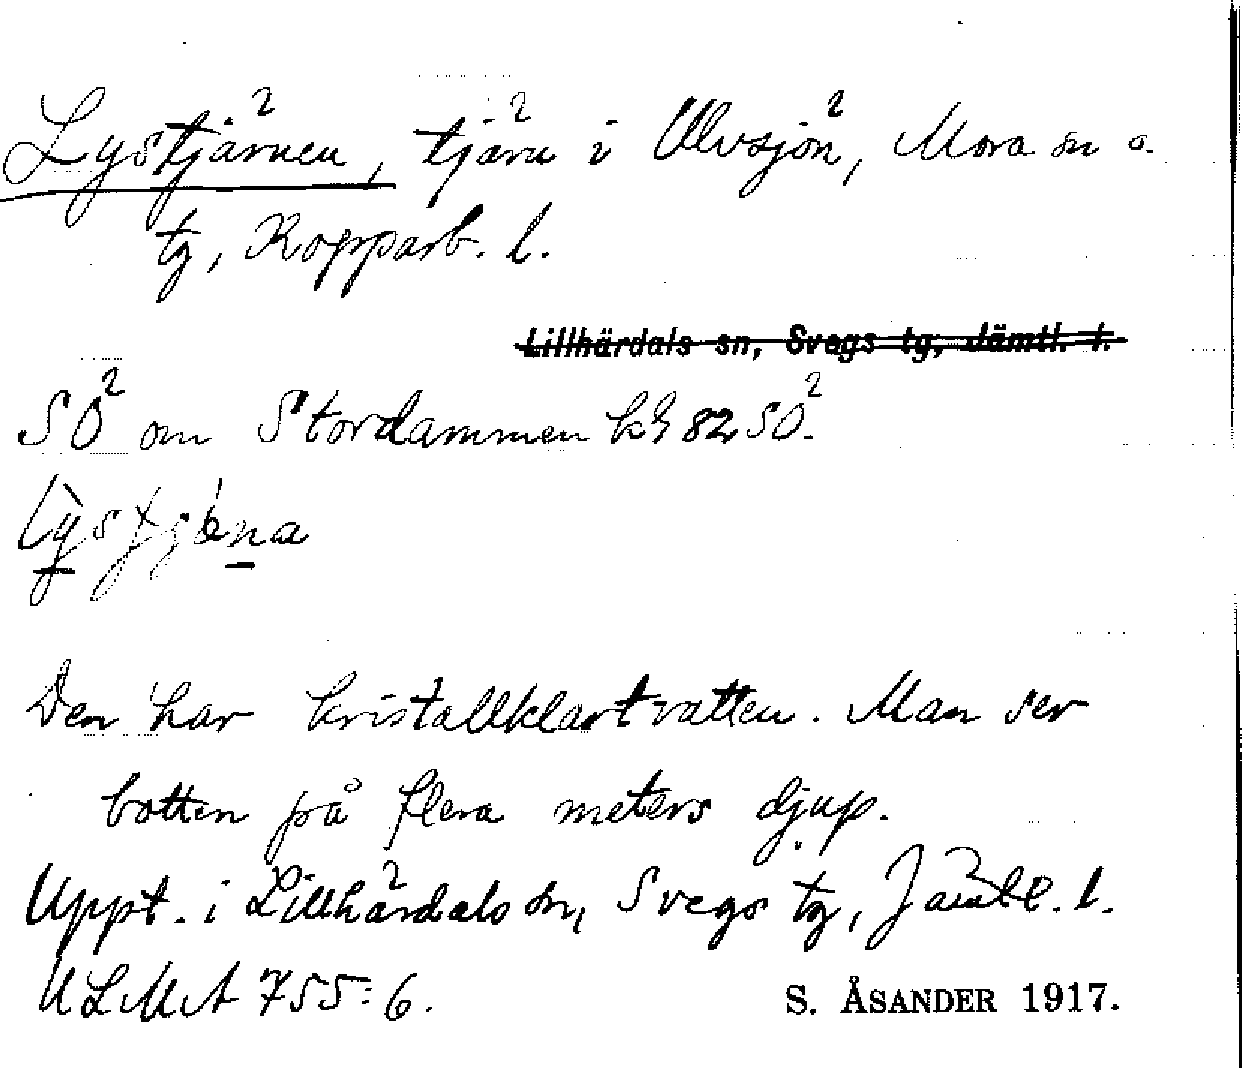 Lystjärnen, tjärn i Ulvsjön, Mora sn o.
tg, Kopparb. l.
Lillhärdals sn, Svegs tg, Jämtl. l.
SÖ om Stordammen kbl 82 SÖ.
Den har kristallklart vatten. Man ser
botten på flera meters djup.
Uppt. i Lillhärdals sn, Svegs tg, Jämtl. l.
ULMA 755:6.
S. ÅSANDER 1917.